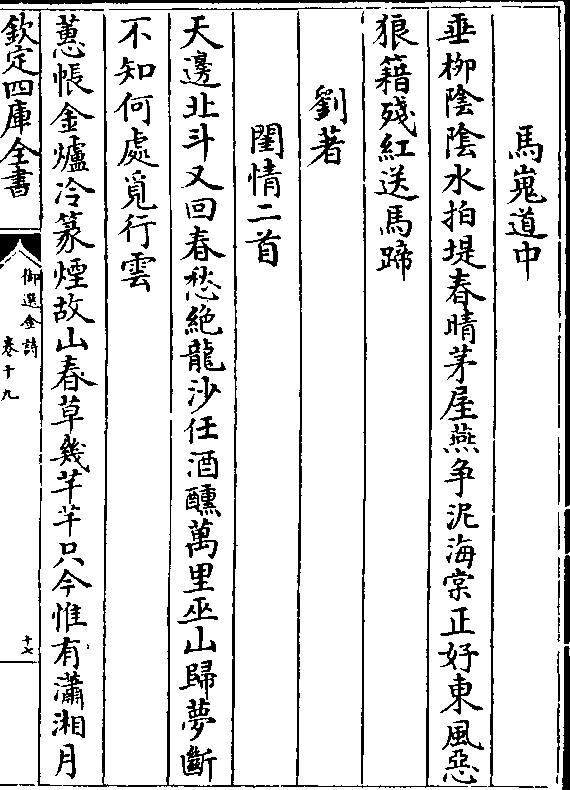 馬嵬道中
垂柳陰陰水拍堤春晴茅屋燕争泥海棠正好東風惡
狼籍殘紅送馬蹄
劉著
閨情二首
天邊北斗又回春愁絶龍沙任酒醺萬里巫山歸夢斷
不知何處覓行雲
蕙帳金爐冷篆煙故山春草幾芊芊只今惟有瀟湘月
欽定四庫全書
御選金詩
卷十九
十七